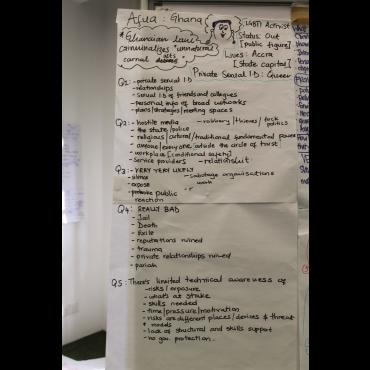 Afua : Ghana
LGBTI Activist
Ghanaian law
criminalizes "unnatural
carnal acts
Status: Out
[public figure]
Lives: Accra
[state capital]
Private Sexual ID: Queer
Q1: - private sexual I.D
- relationships
- sexual I.D of friends and collegues
- personal info of broad networks
- plans/strategies/meeting spaces
Q2: - hostile media
- robbery/thieves/fuck politics
- the state/police
- religious/cultural/traditional fundamental
- anyone/everyone outside the circle of trust
- workplace [conditional safety]
- service providers
- relationsuit
Q3: - VERY VERY LIKELY
- silence
- sabotage organisations
work
- expose
- public
reaction
Q4: REALLY BAD
- Jail
- Death
- Exile
- reputations ruined
- trauma
- private relationships ruined
- pariah
Q5: There's limited technical awareness of
- risks/exposure
- what's at stake
- skills needed
- time/pressure/motivation
- risks are different places/devices & threat
models
- lack of structural and skills support
- no gov. protection.